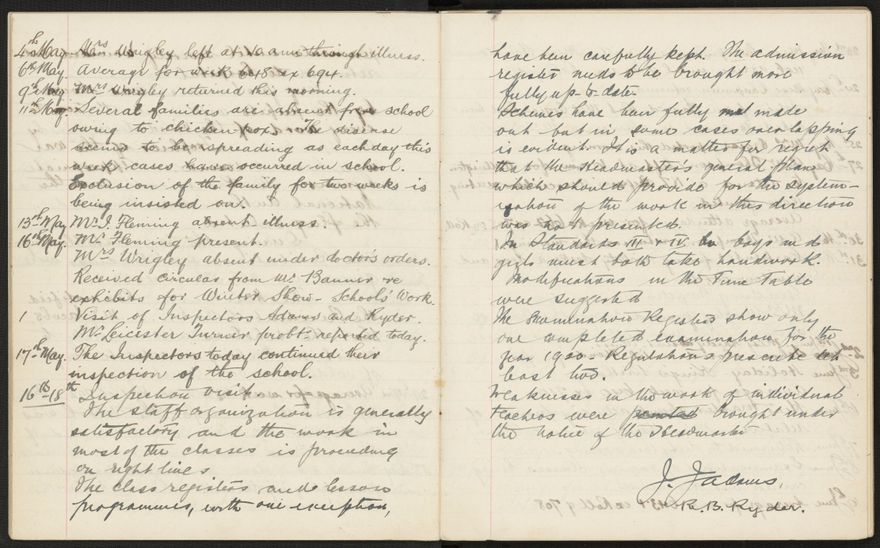 4th May. Mrs Wrigley left at 10 a.m. through illness.
6th May. Average for week 648 ex 694.
9th May. Mrs Wrigley returned this morning.
11th May. Several families are absent from school
owing to chicken pox. The disease
seems to be spreading as each day this
week cases have occurred in school.
Exclusion of the family for two weeks is
being insisted on.
13th May Mr I. Fleming absent illness.
16th May. Mr Fleming present.
Mrs Wrigley absent under doctors orders.
Received circular from Mr Banner re
exhibits for Winter Show - Schools' Work.
Visit of Inspectors Adams and Ryder.
Mr Leicester Turner probr. reported today.
17th May. The Inspectors today continued their
inspection of the school.
16th-18th Inspection visit
The staff organization is generally
satisfactory and the work in
most of the classes is proceeding
on right lines
The class registers and lesson
programmes, with one exception,
have been carefully kept. The admission
register needs to be brought more
fully up to date
Schemes have been fully made
out but in some cases overlapping
is evident. It is a matter for regret
that the Headmaster's general plan
which should provide for the system-
ization of the work in this direction
was not presented.
In Standards III & IV boys and
girls must both take handwork.
Modifications in the Time Table
were suggested
The Examination Registers show only
one completed examination for the
year Regulations prescribe at
least two.
Weaknesses in the work of individual
teachers were brought under
the notice of the Headmaster
J. J. Adams,
R. B. Ryder.